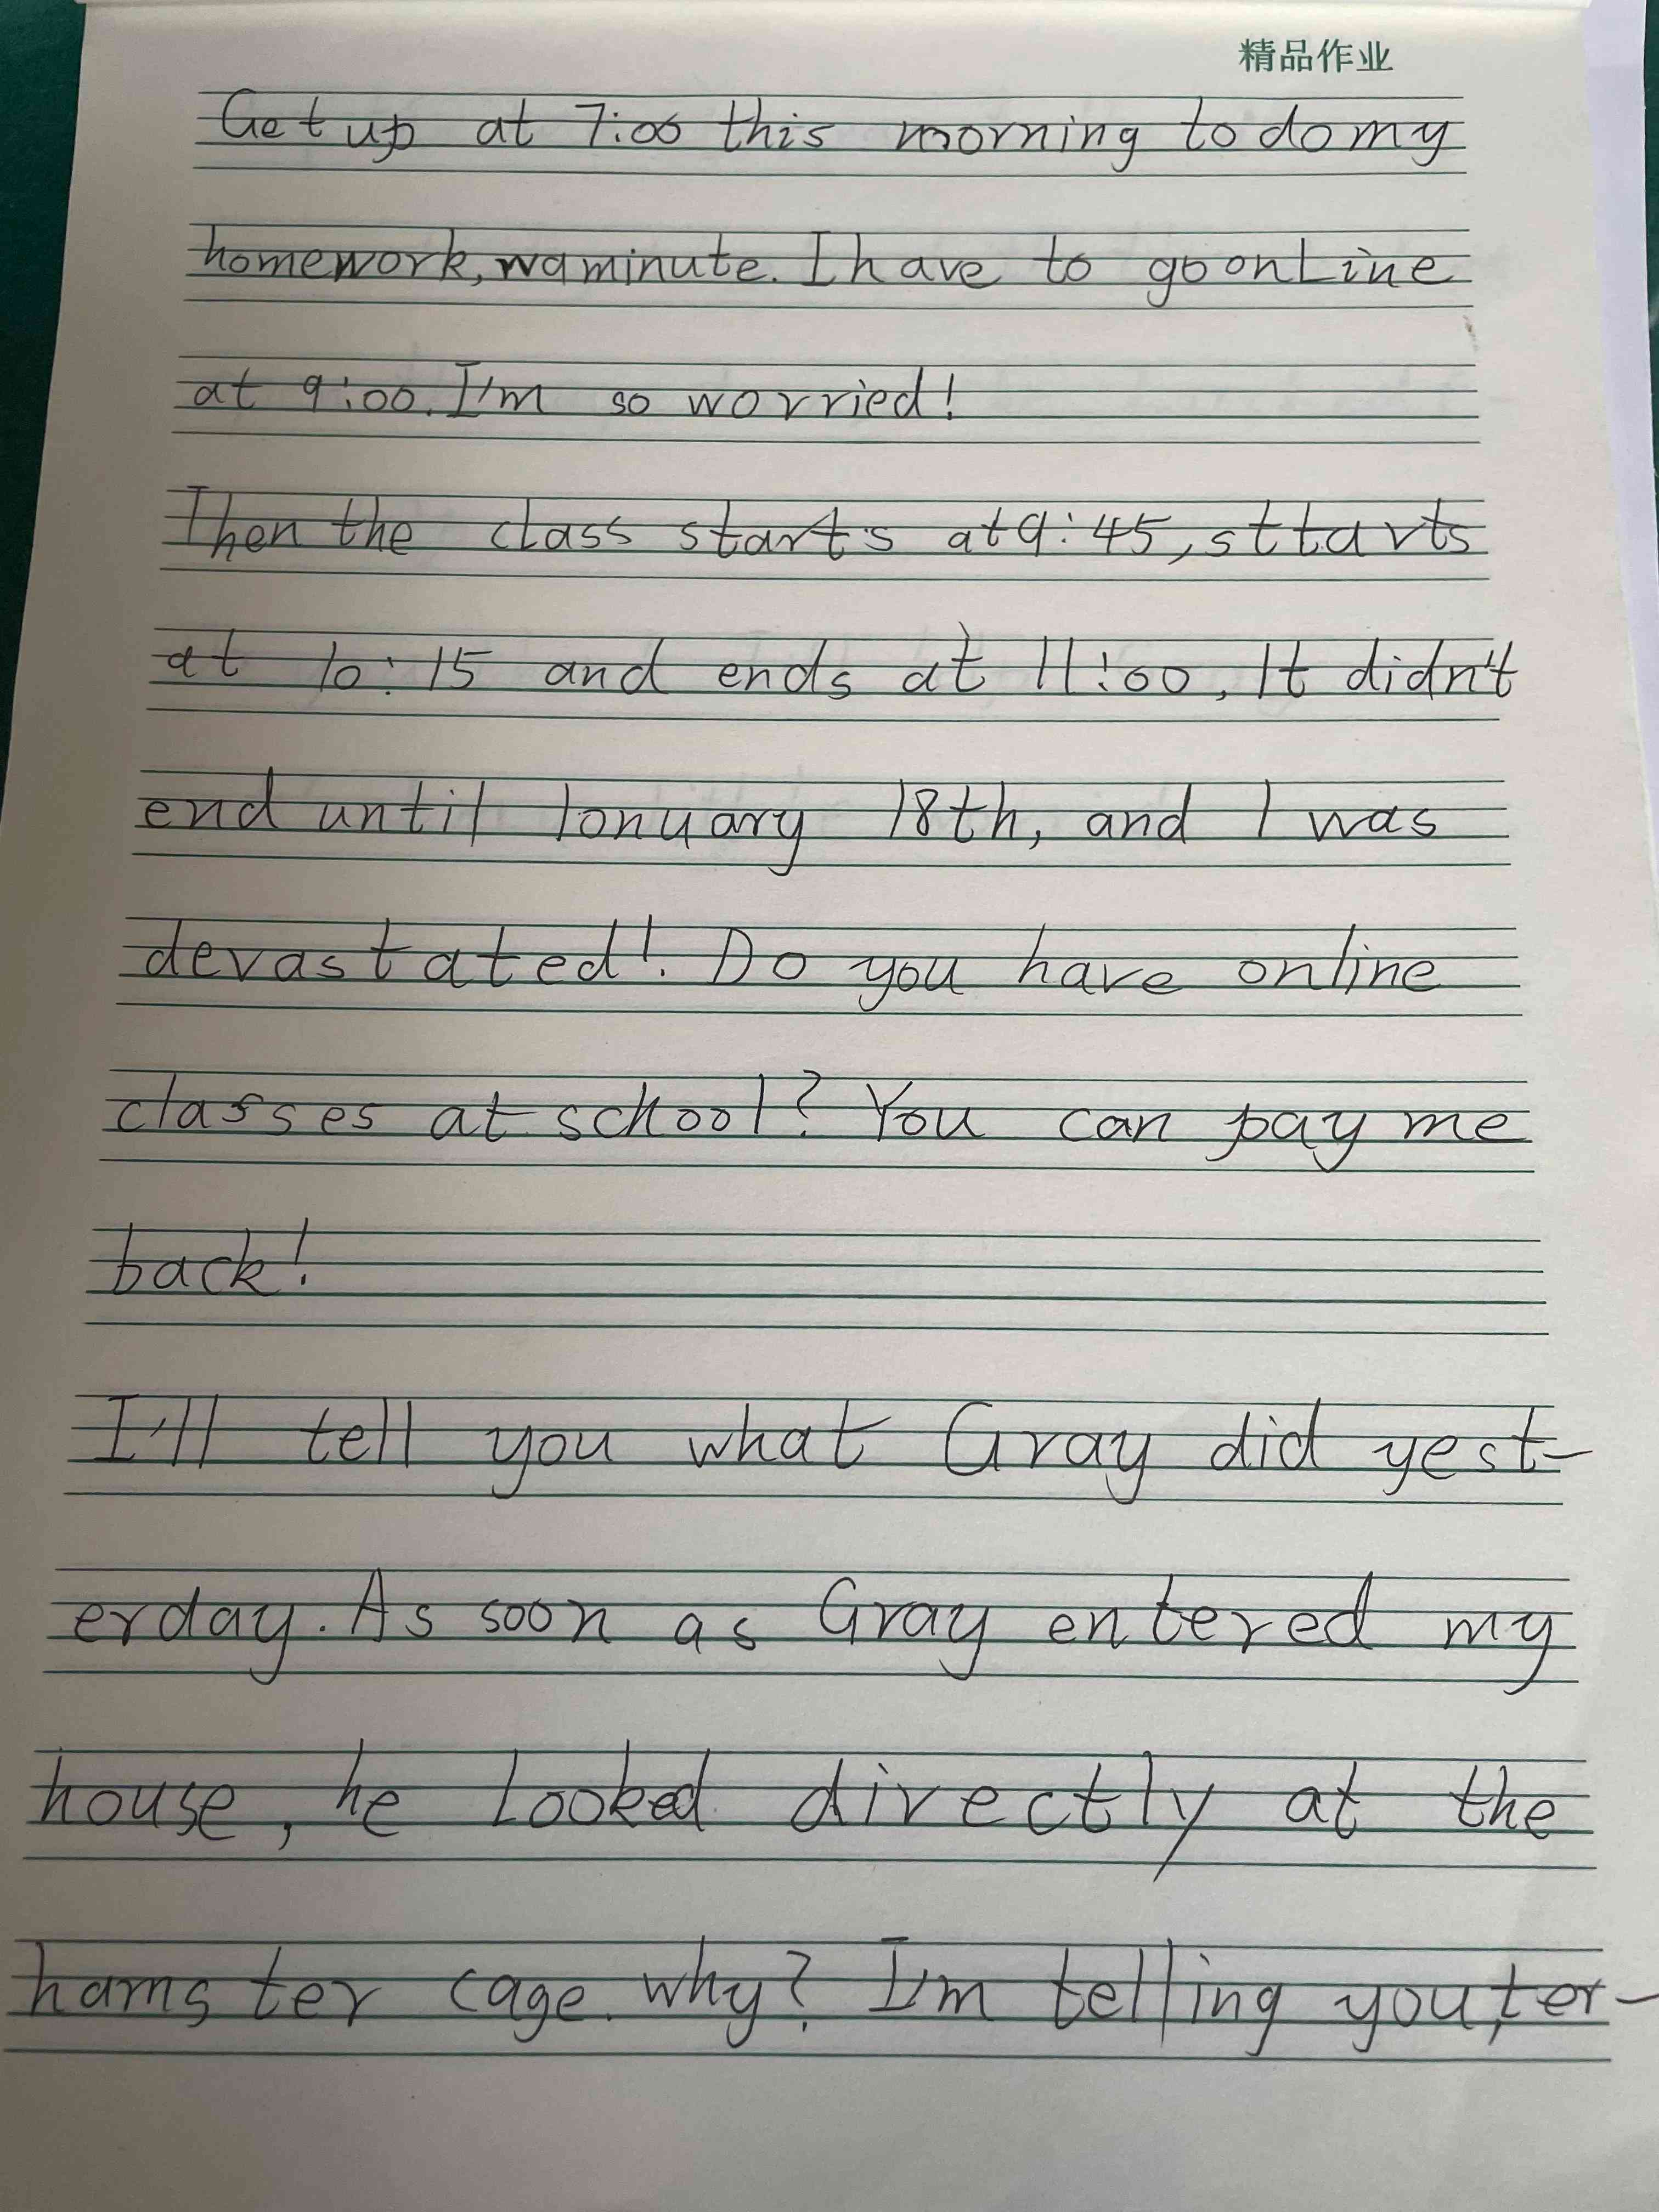 精品作业
Get up at 7:00 this morning to do my
homework, waminute. I have to go onLine
at 9:00. I'm so worried!
Then the class starts at 9:45, sttarts
at 10:15 and ends at 11:00, It didn't
end until Jonuary 18th, and I was
devastated! Do you have online
classes at school? You can pay me
back!
I'll tell you what Gray did yest-
erday. As soon as Gray entered my
house, he Looked directly at the
hamster cage. why? I'm telling you, ter-